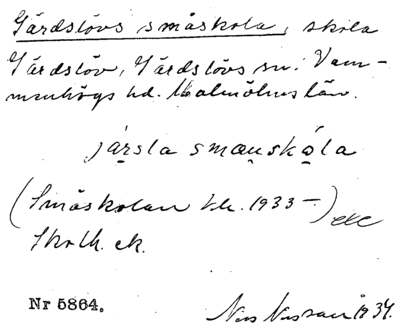 Gärdslövs småskola, skola
Gärdslöv, Gärdslövs sn. Vem-
menhögs hd. Malmöhus län.
jársla smạuskọ́la
(Småskolan 1933-)
Skolh. ek.
Nr 5864.
Nils Nilsson 1934.